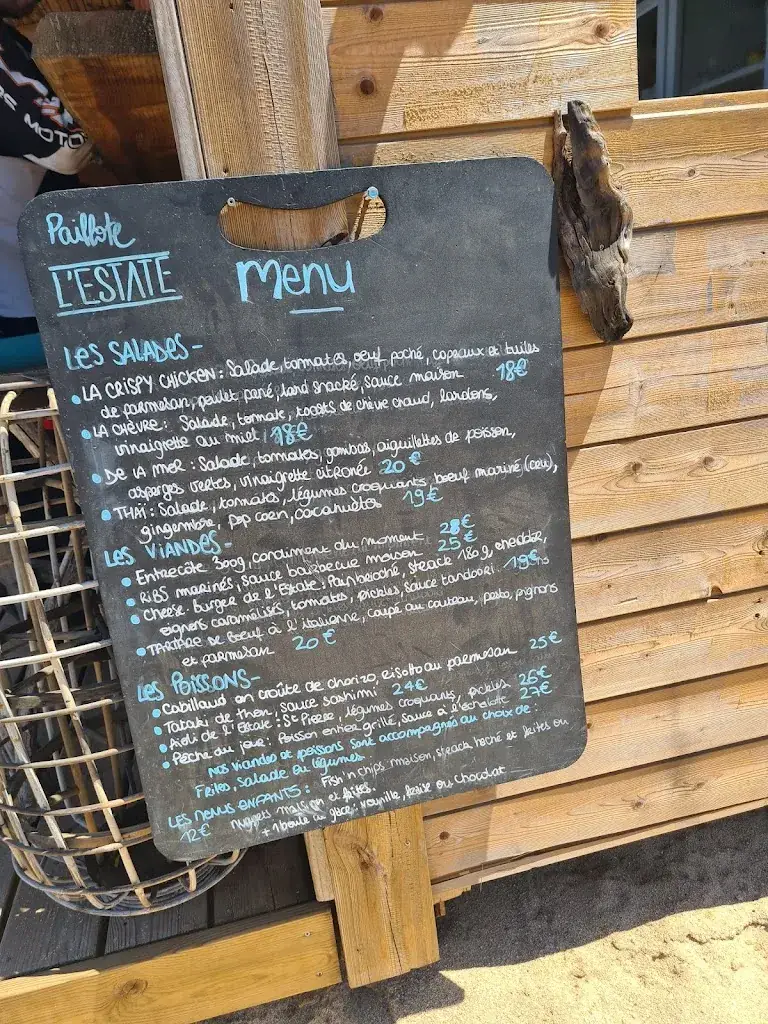 RS MOTO
Paillote
L'ESTATE
Menu
LES SALADES -
• LA CRISPY CHICKEN : Salade, tomates, oeuf poché, copeaux et tuiles
de parmesan, poulet pané, lard snacké, sauce maison 18€
• LA CHÈVRE : Salade, tomate, toasts de chèvre chaud, lardons,
vinaigrette au miel 18€
• DE LA MER : Salade, tomates, gambas, aiguillettes de poisson,
asperges vertes, vinaigrette citronée 20€
• THAÏ : Salade, tomates, légumes croquants, boeuf mariné (cru),
gingembre, pop corn, cacahuètes 19€
LES VIANDES -
• Entrecôte 300g, condiment du moment 28€
• RIBS marinés, sauce barbecue maison 25€
• Cheese burger de l'Estate : Pain brioché, steack 180g, cheddar,
oignons caramélisés, tomates, pickles, sauce tandoori 19€
• TARTARE DE Boeuf à l'italienne, coupé au couteau, pesto, pignons
et parmesan 20€
LES POISSONS -
• Cabillaud en croûte de chorizo, risotto au parmesan 25€
• Tataki de thon, sauce sashimi 24€
• Aïoli de l'Estate : St Pierre, légumes croquants, pickles 26€
• Pêche du jour : Poisson entier grillé, sauce à l'échalote 23€
Nos viandes et poissons sont accompagnés au choix de :
Frites, Salade ou légumes.
LES MENUS ENFANTS : Fish'n chips maison, steack haché et frites ou
12€ nuggets maison et frites.
+ 1 boule de glace : vanille, fraise ou chocolat